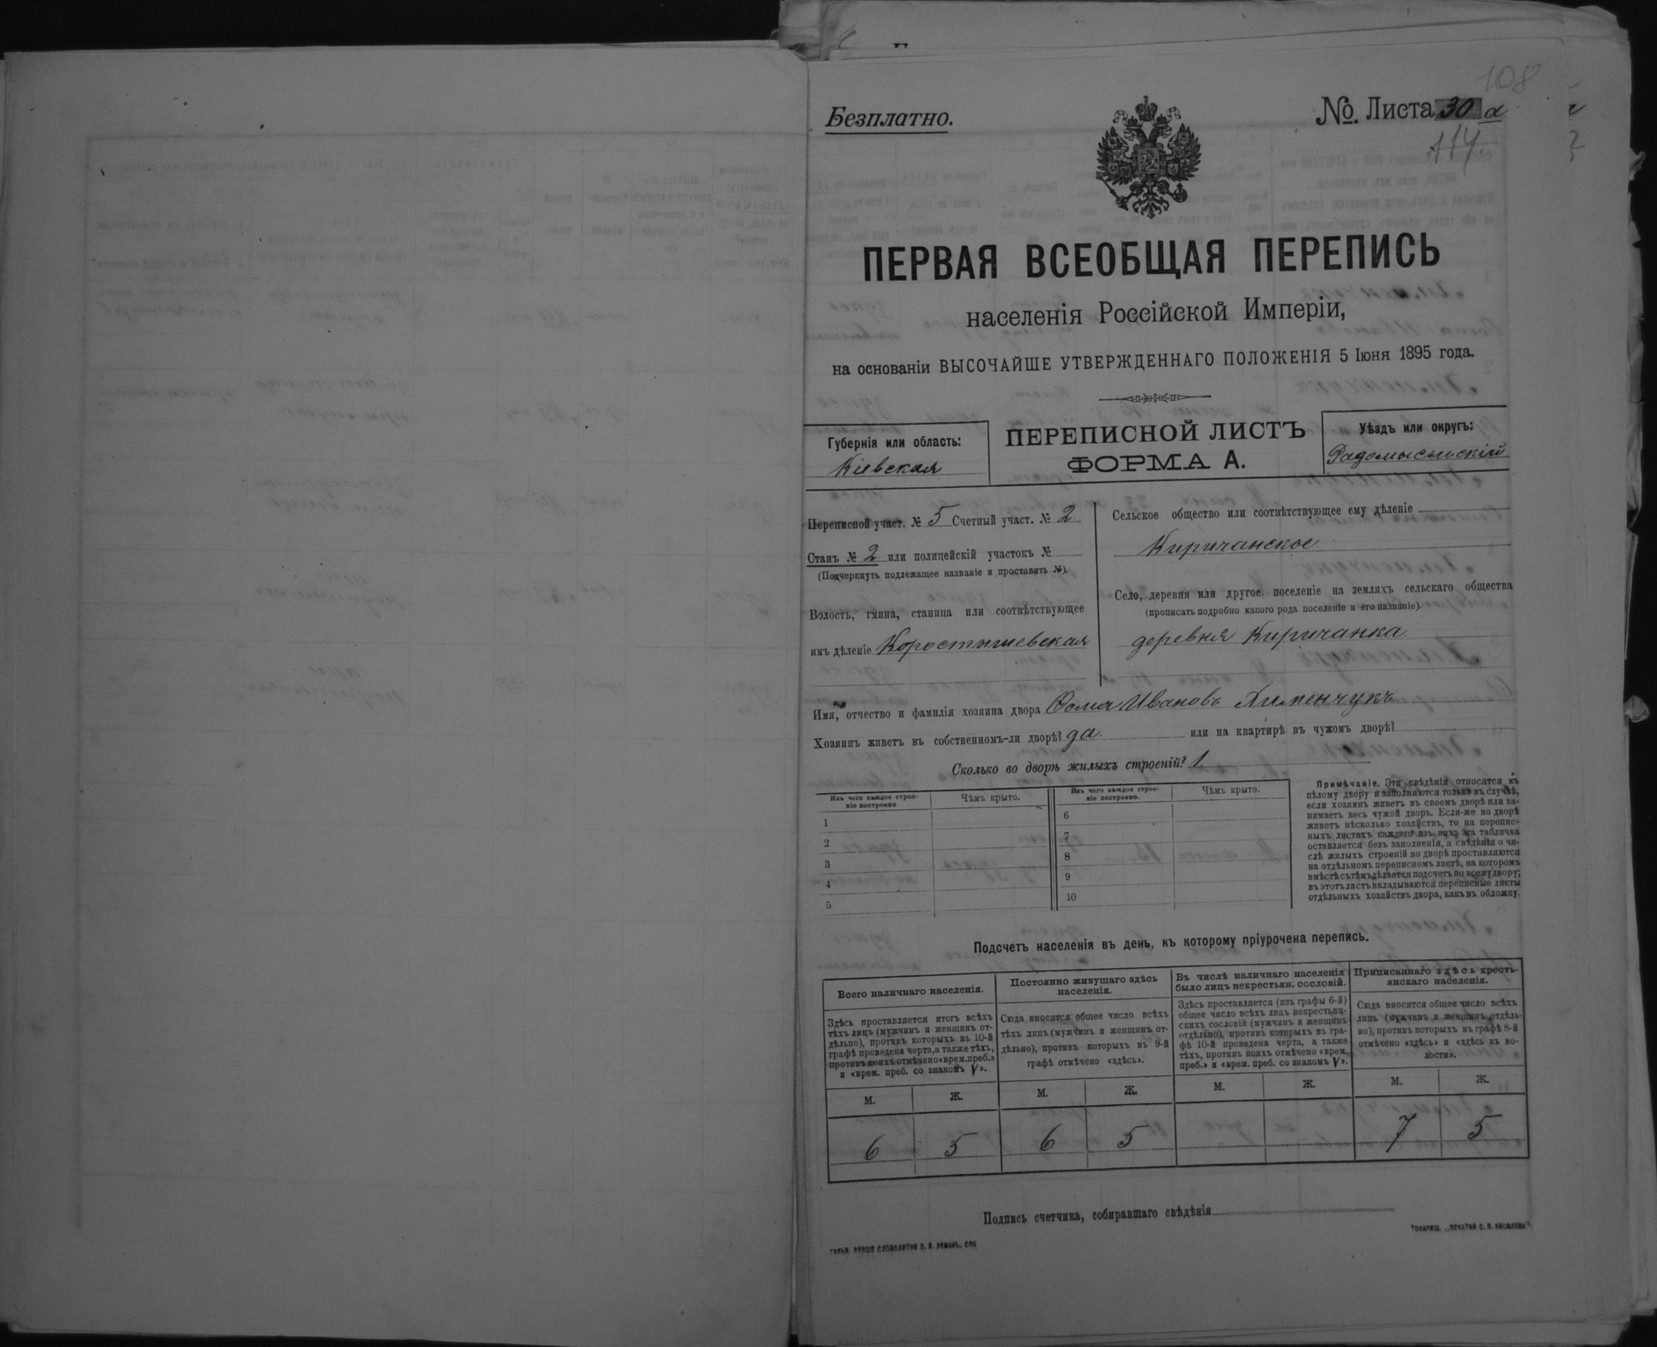 108
Безплатно.
№. Листа 30 а
114.
ПЕРВАЯ ВСЕОБЩАЯ ПЕРЕПИСЬ
населенія Россійской Имперіи,
на основаніи ВЫСОЧАЙШЕ УТВЕРЖДЕННАГО ПОЛОЖЕНІЯ 5 Іюня 1895 года.
Губернія или область:
Кіевская
ПЕРЕПИСНОЙ ЛИСТЪ
ФОРМА А.
Уѣздъ или округъ:
Радомысльскій
Переписной участ. № 5 Счетный участ. № 2
Станъ № 2 или полицейскій участокъ №
(Подчеркнуть подлежащее названіе и проставить №).
Волость, гмина, станица или соотвѣтствующее
имъ дѣленіе Коростышевская
Сельское общество или соотвѣтствующее ему дѣленіе
Киричанское.
Село, деревня или другое поселеніе на земляхъ сельскаго общества
(прописать подробно какого рода поселеніе и его названіе).
деревня Киричанка
Имя, отчество и фамилія хозяина двора Фома Ивановъ Хименчукъ
Хозяинъ живетъ въ собственномъ-ли дворѣ? да. или на квартирѣ въ чужомъ дворѣ?
Сколько во дворѣ жилыхъ строеній? 1
Изъ чего каждое строе-
ніе построено.
Чѣмъ крыто.
1
2
3
4
5
Изъ чего каждое строе-
ніе построено.
Чѣмъ крыто.
6
7
8
9
10
Примѣчаніе. Эти свѣдѣнія относятся къ
цѣлому двору и заполняются только въ случаѣ,
если хозяинъ живетъ въ своемъ дворѣ или за-
нимаетъ весь чужой дворъ. Если-же во дворѣ
живетъ нѣсколько хозяйствъ, то на перепис-
ныхъ листахъ каждаго изъ нихъ эта табличка
оставляется безъ заполненія, а свѣдѣнія о чи-
слѣ жилыхъ строеній во дворѣ проставляются
на отдѣльномъ переписномъ листѣ, на которомъ
вмѣстѣ съ тѣмъ дѣлается подсчетъ по всему двору;
въ этотъ листъ вкладываются переписные листы
отдѣльныхъ хозяйствъ двора, какъ въ обложку.
Подсчетъ населенія въ день, къ которому пріурочена перепись.
Всего наличнаго населенія.
Здѣсь проставляется итогъ всѣхъ
тѣхъ лицъ (мужчинъ и женщинъ от-
дѣльно), противъ которыхъ въ 10-й
графѣ проведена черта, а также тѣхъ,
противъ коихъ отмѣчено «врем. преб.»
и «врем. преб. со знакомъ V».
М. Ж.
6 5
Постоянно живущаго здѣсь
населенія.
Сюда вносится общее число всѣхъ
тѣхъ лицъ (мужчинъ и женщинъ от-
дѣльно), противъ которыхъ въ 9-й
графѣ отмѣчено «здѣсь».
М. Ж.
6 5
Въ числѣ наличнаго населенія
было лицъ некрестьян. сословій.
Здѣсь проставляется (изъ графы 6-й)
общее число всѣхъ лицъ некрестьян-
скихъ сословій (мужчинъ и женщинъ
отдѣльно), противъ которыхъ въ гра-
фѣ 10-й проведена черта, а также
тѣхъ, противъ коихъ отмѣчено «врем.
преб.» и «врем. преб. со знакомъ V».
М. Ж.
Приписаннаго здѣсь кресть-
янскаго населенія.
Сюда вносится общее число всѣхъ
лицъ (мужчинъ и женщинъ отдѣль-
но), противъ которыхъ въ графѣ 8-й
отмѣчено «здѣсь» и «здѣсь въ во-
лости».
М. Ж.
7 5
Подпись счетчика, собиравшаго свѣдѣнія